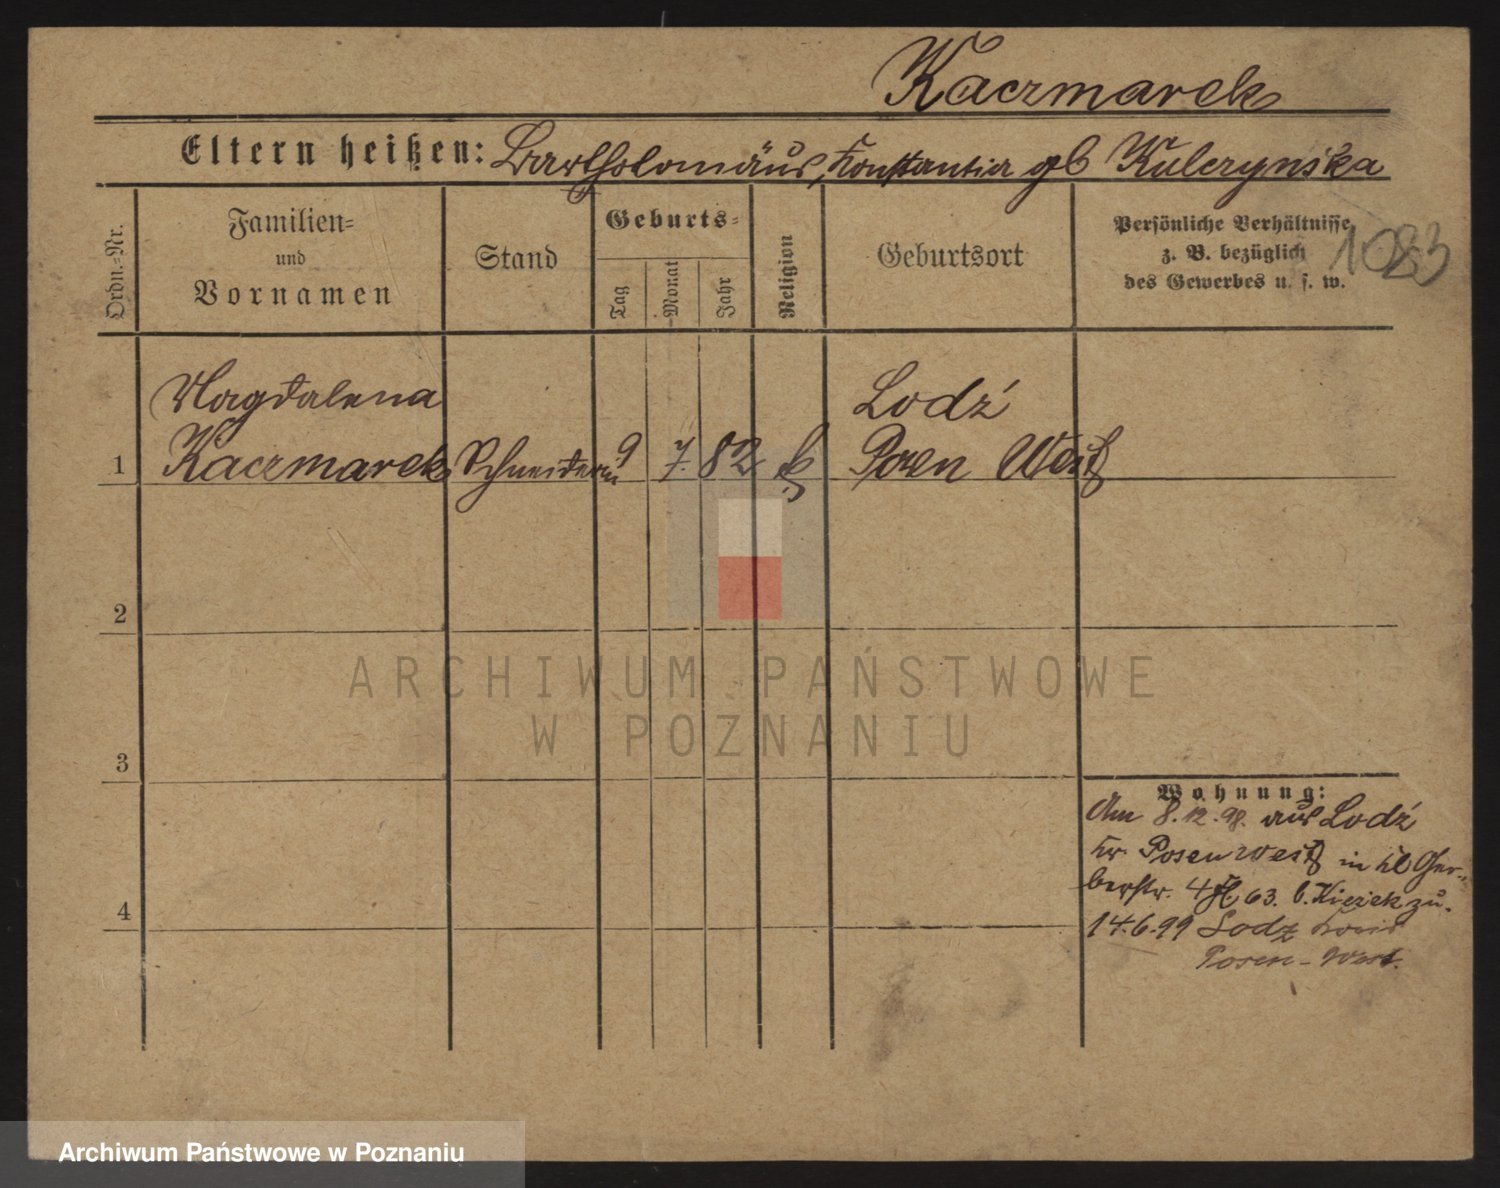 Kaczmarek
Eltern heißen: Bartholomäus, Konstantia gb Kulczynska
Ordn.-Nr.
Familien-
und
Vornamen
Stand
Geburts-
Tag
Monat
Jahr
Religion
Geburtsort
Persönliche Verhältnisse
z. B. bezüglich
des Gewerbes u. s. w.
1083
Magdalena Lodź
1 Kaczmarek Schneiderin 9 7. 82 k Posen West
2
3
4
Wohnung:
Am 8.12.98. aus Lodź
Kr. Posen West in kl Ger-
berstr. 4 63. b. zu.
14.6.99 Lodz Kreis
Posen-West.
ARCHIWUM PAŃSTWOWE
W POZNANIU
Archiwum Państwowe w Poznaniu